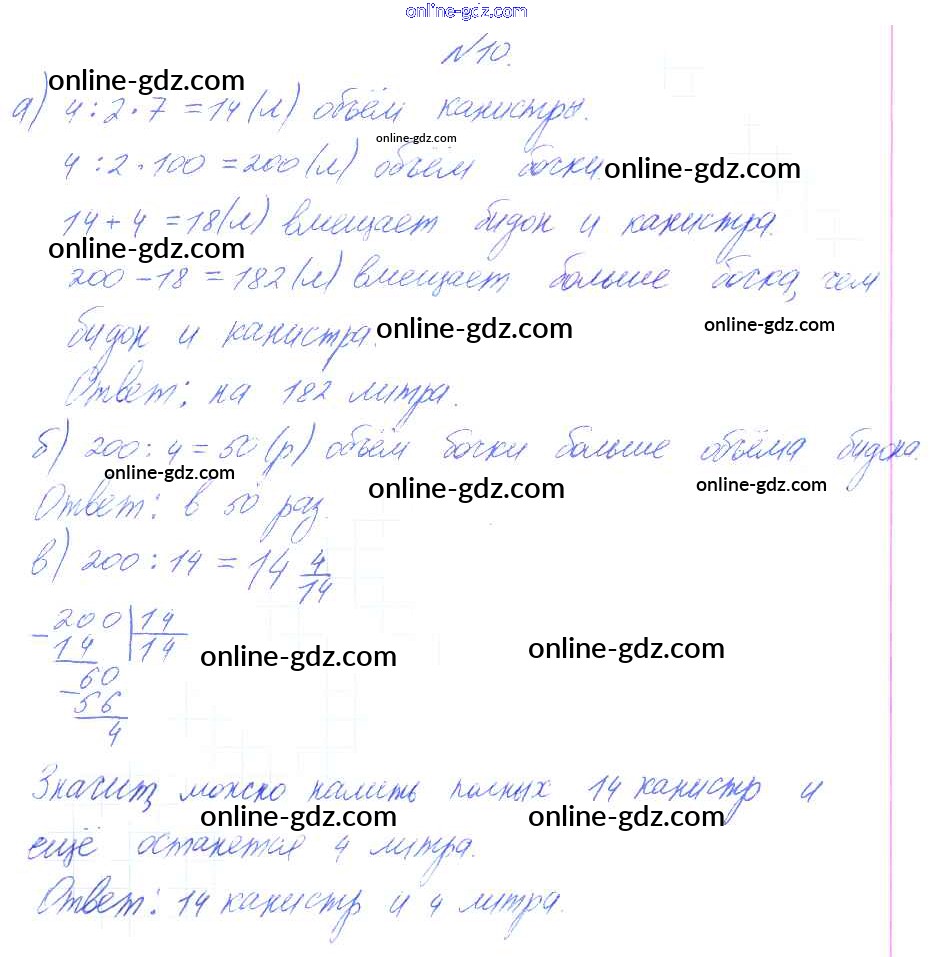 online-gdz.com
№10.
online-gdz.com
а) 4 : 2 · 7 = 14 (л) объём канистры.
online-gdz.com
4 : 2 · 100 = 200 (л) объём бочки.
online-gdz.com
14 + 4 = 18 (л) вмещает бидон и канистра.
online-gdz.com
200 - 18 = 182 (л) вмещает больше бочка, чем
бидон и канистра.
online-gdz.com
online-gdz.com
Ответ: на 182 литра.
б) 200 : 4 = 50 (р) объём бочки больше объёма бидона.
online-gdz.com
online-gdz.com
online-gdz.com
Ответ: в 50 раз.
в) 200 : 14 = 14 4/14
200 | 14
- 14 | 14
60
- 56
4
online-gdz.com
online-gdz.com
Значит, можно налить полных 14 канистр и
online-gdz.com
online-gdz.com
ещё останется 4 литра.
Ответ: 14 канистр и 4 литра.